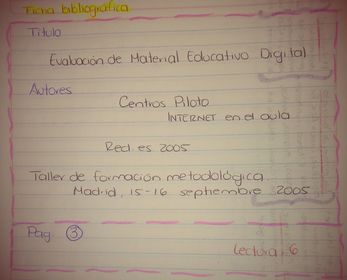 Ficha bibliográfica
Título
Evaluación de Material Educativo Digital
Autores
Centros Piloto
INTERNET en el aula
Red.es 2005
Taller de formación metodológica.
Madrid, 15-16 septiembre 2005
Pag. 3
Lectura 6